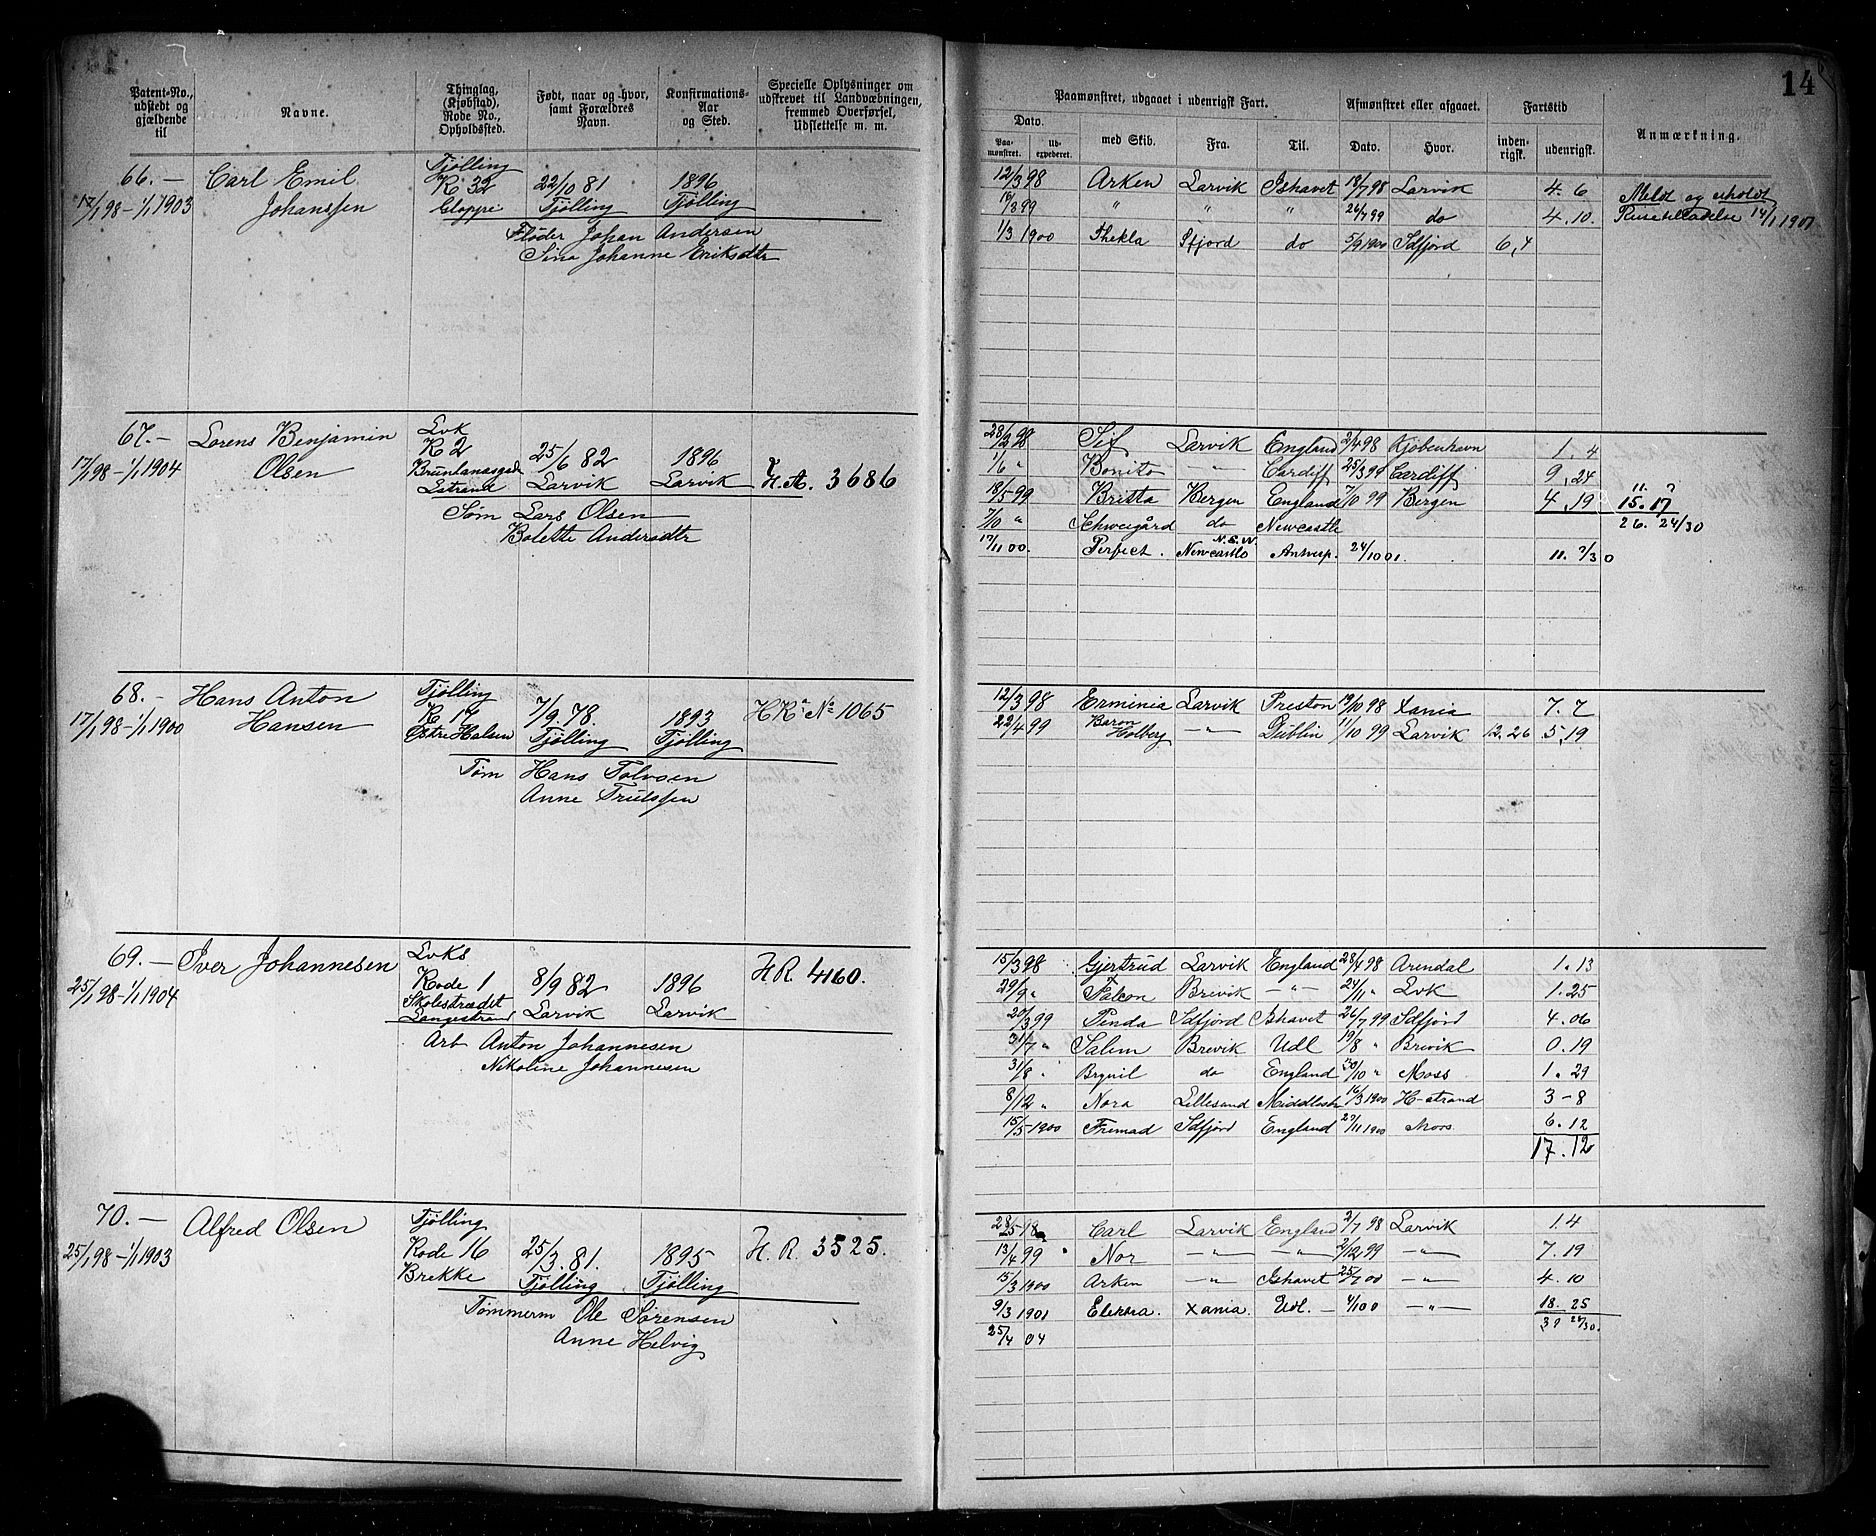 14
Patent-No., udstedt og gjældende til
Navne.
Thinglag, (Kjøbstad), Rode No., Opholdssted.
Født, naar og hvor, samt Forældres Navn.
Konfirmations-Aar og Sted.
Specielle Oplysninger om udskrevet til Landvæbningen, fremmed Overførsel, Udslettelse m. m.
Paamønstret, udgaaet i udenrigsk Fart.
Afmønstret eller afgaaet.
Fartstid
Anmærkning.
Dato.
Paamønstret. Udexpederet. med Skib. Fra. Til. Dato. Hvor. indenrigsk. udenrigsk.
66.— Carl Emil Tjølling
Johanssen R 32 22/10 81 1896
17/1 98-1/1 1903 Gloppe Tjølling Tjølling
Fløder Johan Andersen
Sina Johanne Eriksdtr
12/3 98 Arken Larvik Ishavet 18/7 98 Larvik 4. 6 Meldt og
/3 99 " " " 26/7 99 do 4. 10. 14/1 1901
1/3 1900 Thekla Sfjord do 5/9 1900 Sdfjord 6,4
67.— Lorens Benjamin Lvk
Olsen R 2 25/6 82 1896
17/1 98-1/1 1904 Larvik Larvik H.A. 3686
Lstrand
Søm Lars Olsen
Bolette Andersdtr
28/2 98 Sif Larvik England 2/4 98 Kjøbenhavn 1. 4
1/6 " Bonito " Cardiff 25/3 99 Cardiff 9. 24
18/5 99 Britta Bergen England 7/10 99 Bergen 4. 19 11. 7
15. 17
7/10 " Schweigård do Newcastle 26. 24/30
17/11 00. Perfect. Newcastle N.S.W. Antwerp. 24/10 01. 11. 7/30
68.— Hans Anton Tjølling
Hansen R 17 7/9 78. 1893 HR No 1065
17/1 98-1/1 1900 Østre Halsen Tjølling Tjølling
Tøm Hans Tolvsen
Anne Trulssen
12/3 98 Erminia Larvik Preston 19/10 98 Xania 7. 7
22/4 99 Baron Holberg —"— Dublin 11/10 99 Larvik 12. 26 5. 19
69.— Iver Johannesen Lvks
25/1 98-1/1 1904 Rode 1 8/9 82 1896 HR 4160.
Skolestrædet
Langestrand Larvik Larvik
Arb Anton Johannesen
Nikoline Johannesen
15/3 98 Gjertrud Larvik England 28/4 98 Arendal 1. 13
29/9 " Falcon Brevik —"— 24/11 " Lvk 1. 25
20/3 99 Pinda Sdfjord Ishavet 26/7 99 Sdfjord 4. 06
31/7 " Salem Brevik Udl 19/8 " Brevik 0. 19
31/8 " do England 30/10 " Moss 1. 29
8/12 " Nora Lillesand Middlesbr 16/3 1900 H-strand 3-8
15/5 1900 Fremad Sdfjord England 27/11 1900 Moss 6. 12
17. 12
70.— Alfred Olsen Tjølling
25/1 98-1/1 1903 Rode 16 25/3. 81. 1895 H. R. 3525.
Brekke Tjølling Tjølling
Tømmerm Ole Sørensen
Anne Helvig
Carl Larvik England 2/7 98 Larvik 1. 4
13/4 99 " Nor —"— —"— 2/12 99 —"— 7. 19
15/3 1900 Arken —"— Ishavet 25/7 00 —"— 4. 10
9/3 1901 Xania. Udl. — 4/10 0 —"— 18. 25
25/4 04 31